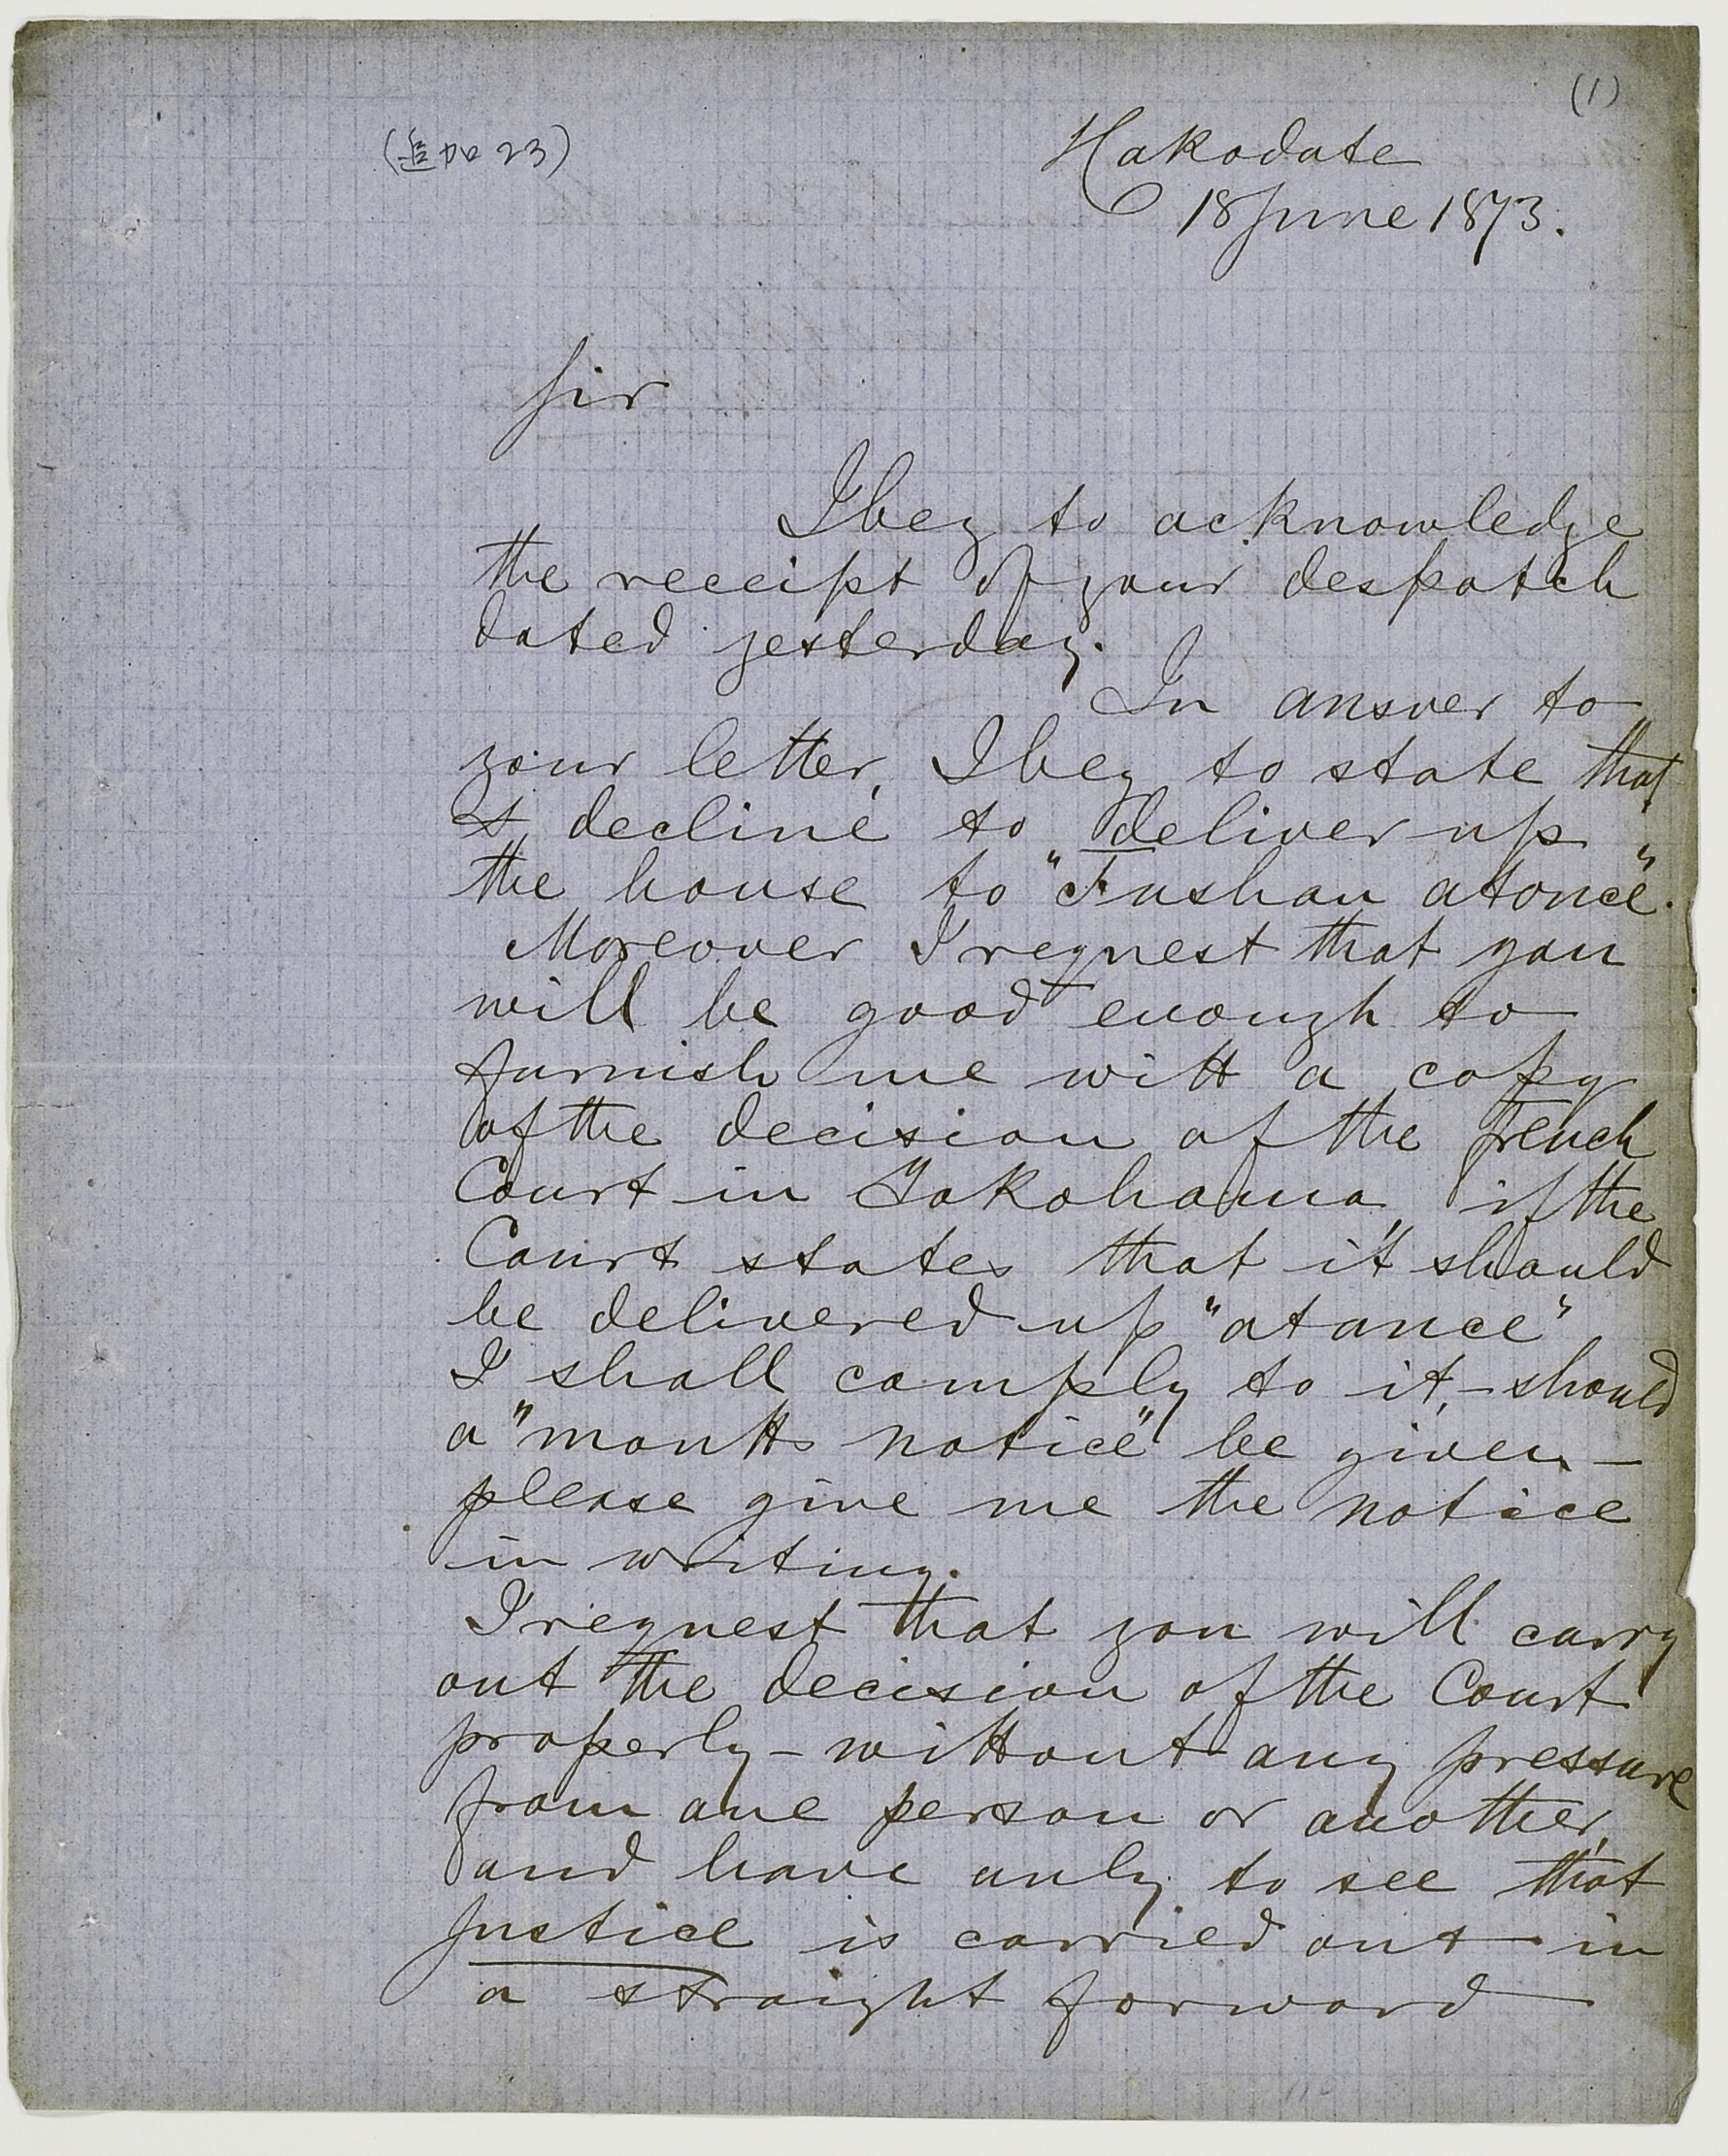 (1)
(追加23)
Hakodate
18 June 1873.
Sir
I beg to acknowledge
the receipt of your despatch
dated yesterday.
In answer to
your letter, I beg to state that
I decline to deliver up
the house to "Fushau at once".
Moreover I request that you
will be good enough to
furnish me with a copy
of the decision of the French
Court in Yokohama, if the
Court states that it should
be delivered up "at once"
I shall comply to it, - should
a "month notice" be given -
please give me the notice
in writing.
I request that you will carry
out the decision of the Court
properly - without any pressure
from one person or another,
and have only to see that
justice is carried out in
a straight forward